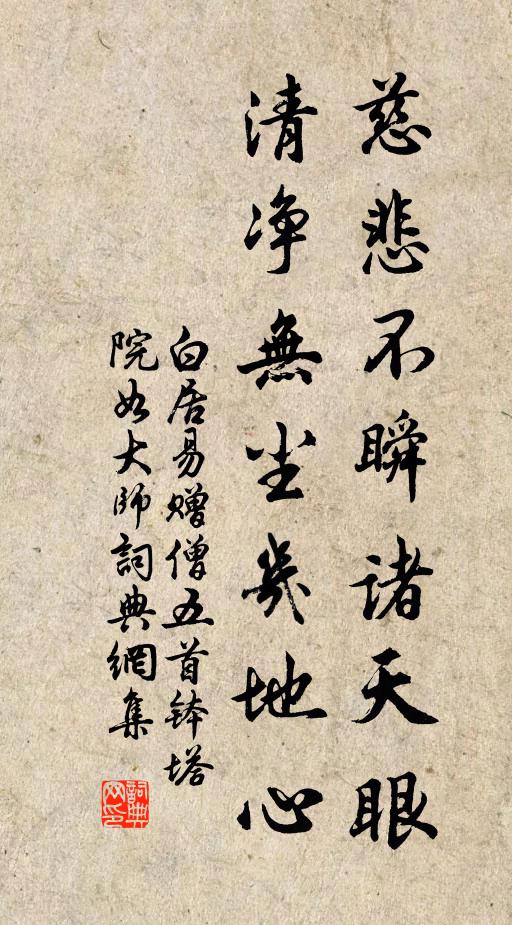 慈悲不瞬諸天眼
清净無尘幾地心
白居易赠僧五首钵塔
院如大师詞典網集
詞典网印